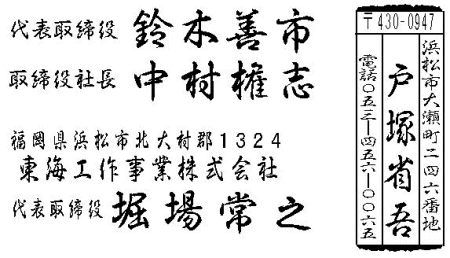 代表取締役 鈴木善市
取締役社長 中村権志
福岡県浜松市北大村郡1324
東海工作事業株式会社
代表取締役 堀場常之
〒430-0947
浜松市大瀬町二四六番地
戸塚省吾
電話〇五三―四五六―〇〇六五